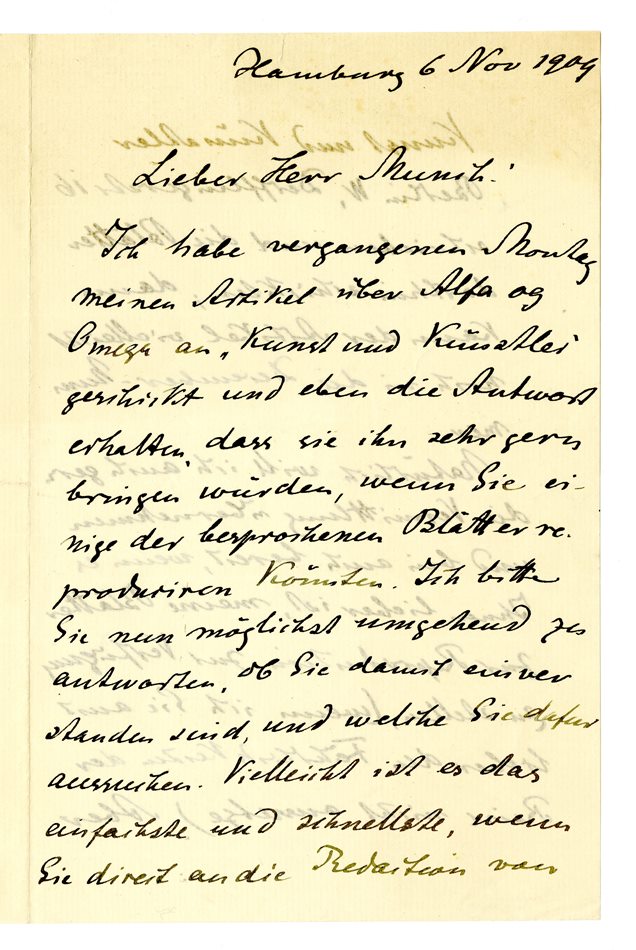 Hamburg 6 Nov 1909
Lieber Herr Munch!
Ich habe vergangenen Montag
meinen Artikel über Alfa og
Omega an „Kunst und Künstler
geschickt und eben die Antwort
erhalten, dass sie ihn sehr gern
bringen würden, wenn Sie ei-
nige der besprochenen Blätter re-
produciren könnten. Ich bitte
Sie nun möglichst umgehend zu
antworten, ob Sie damit einver
standen sind, und welche Sie dafür
aussuchen. Vielleicht ist es das
einfachste und schnellste, wenn
Sie direct an die Redaction von